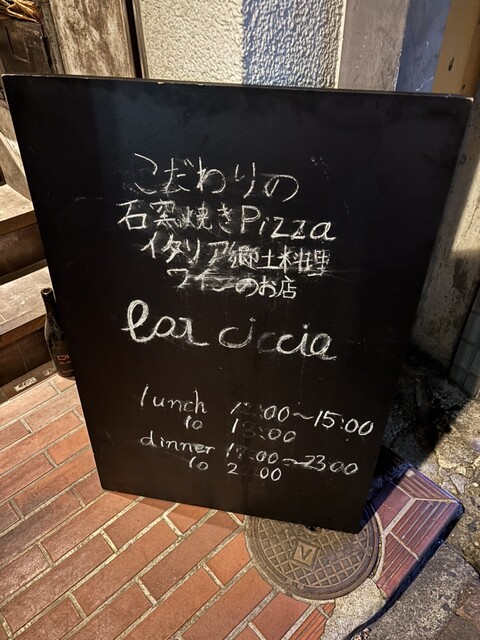 こだわりの
石窯焼きPizza
イタリア郷土料理
ワインのお店
Lar ciccia
lunch 12:00〜15:00
to
dinner 〜23:00
to
V